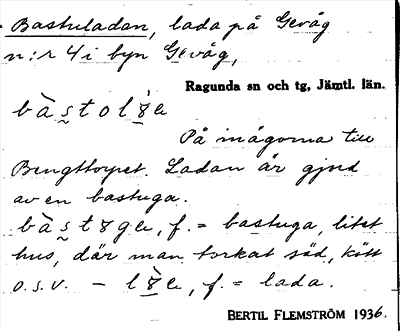 Bastuladan, lada på Gevåg
n:r 4 i byn Gevåg,
Ragunda sn och tg, Jämtl. län.
På mågorna till
Bengttorpet. Ladan är gjord
av en bastuga.
f. = bastuga, litet
hus, där man torkat säd, kött
o.s.v. - f. = lada.
BERTIL FLEMSTRÖM 1936.